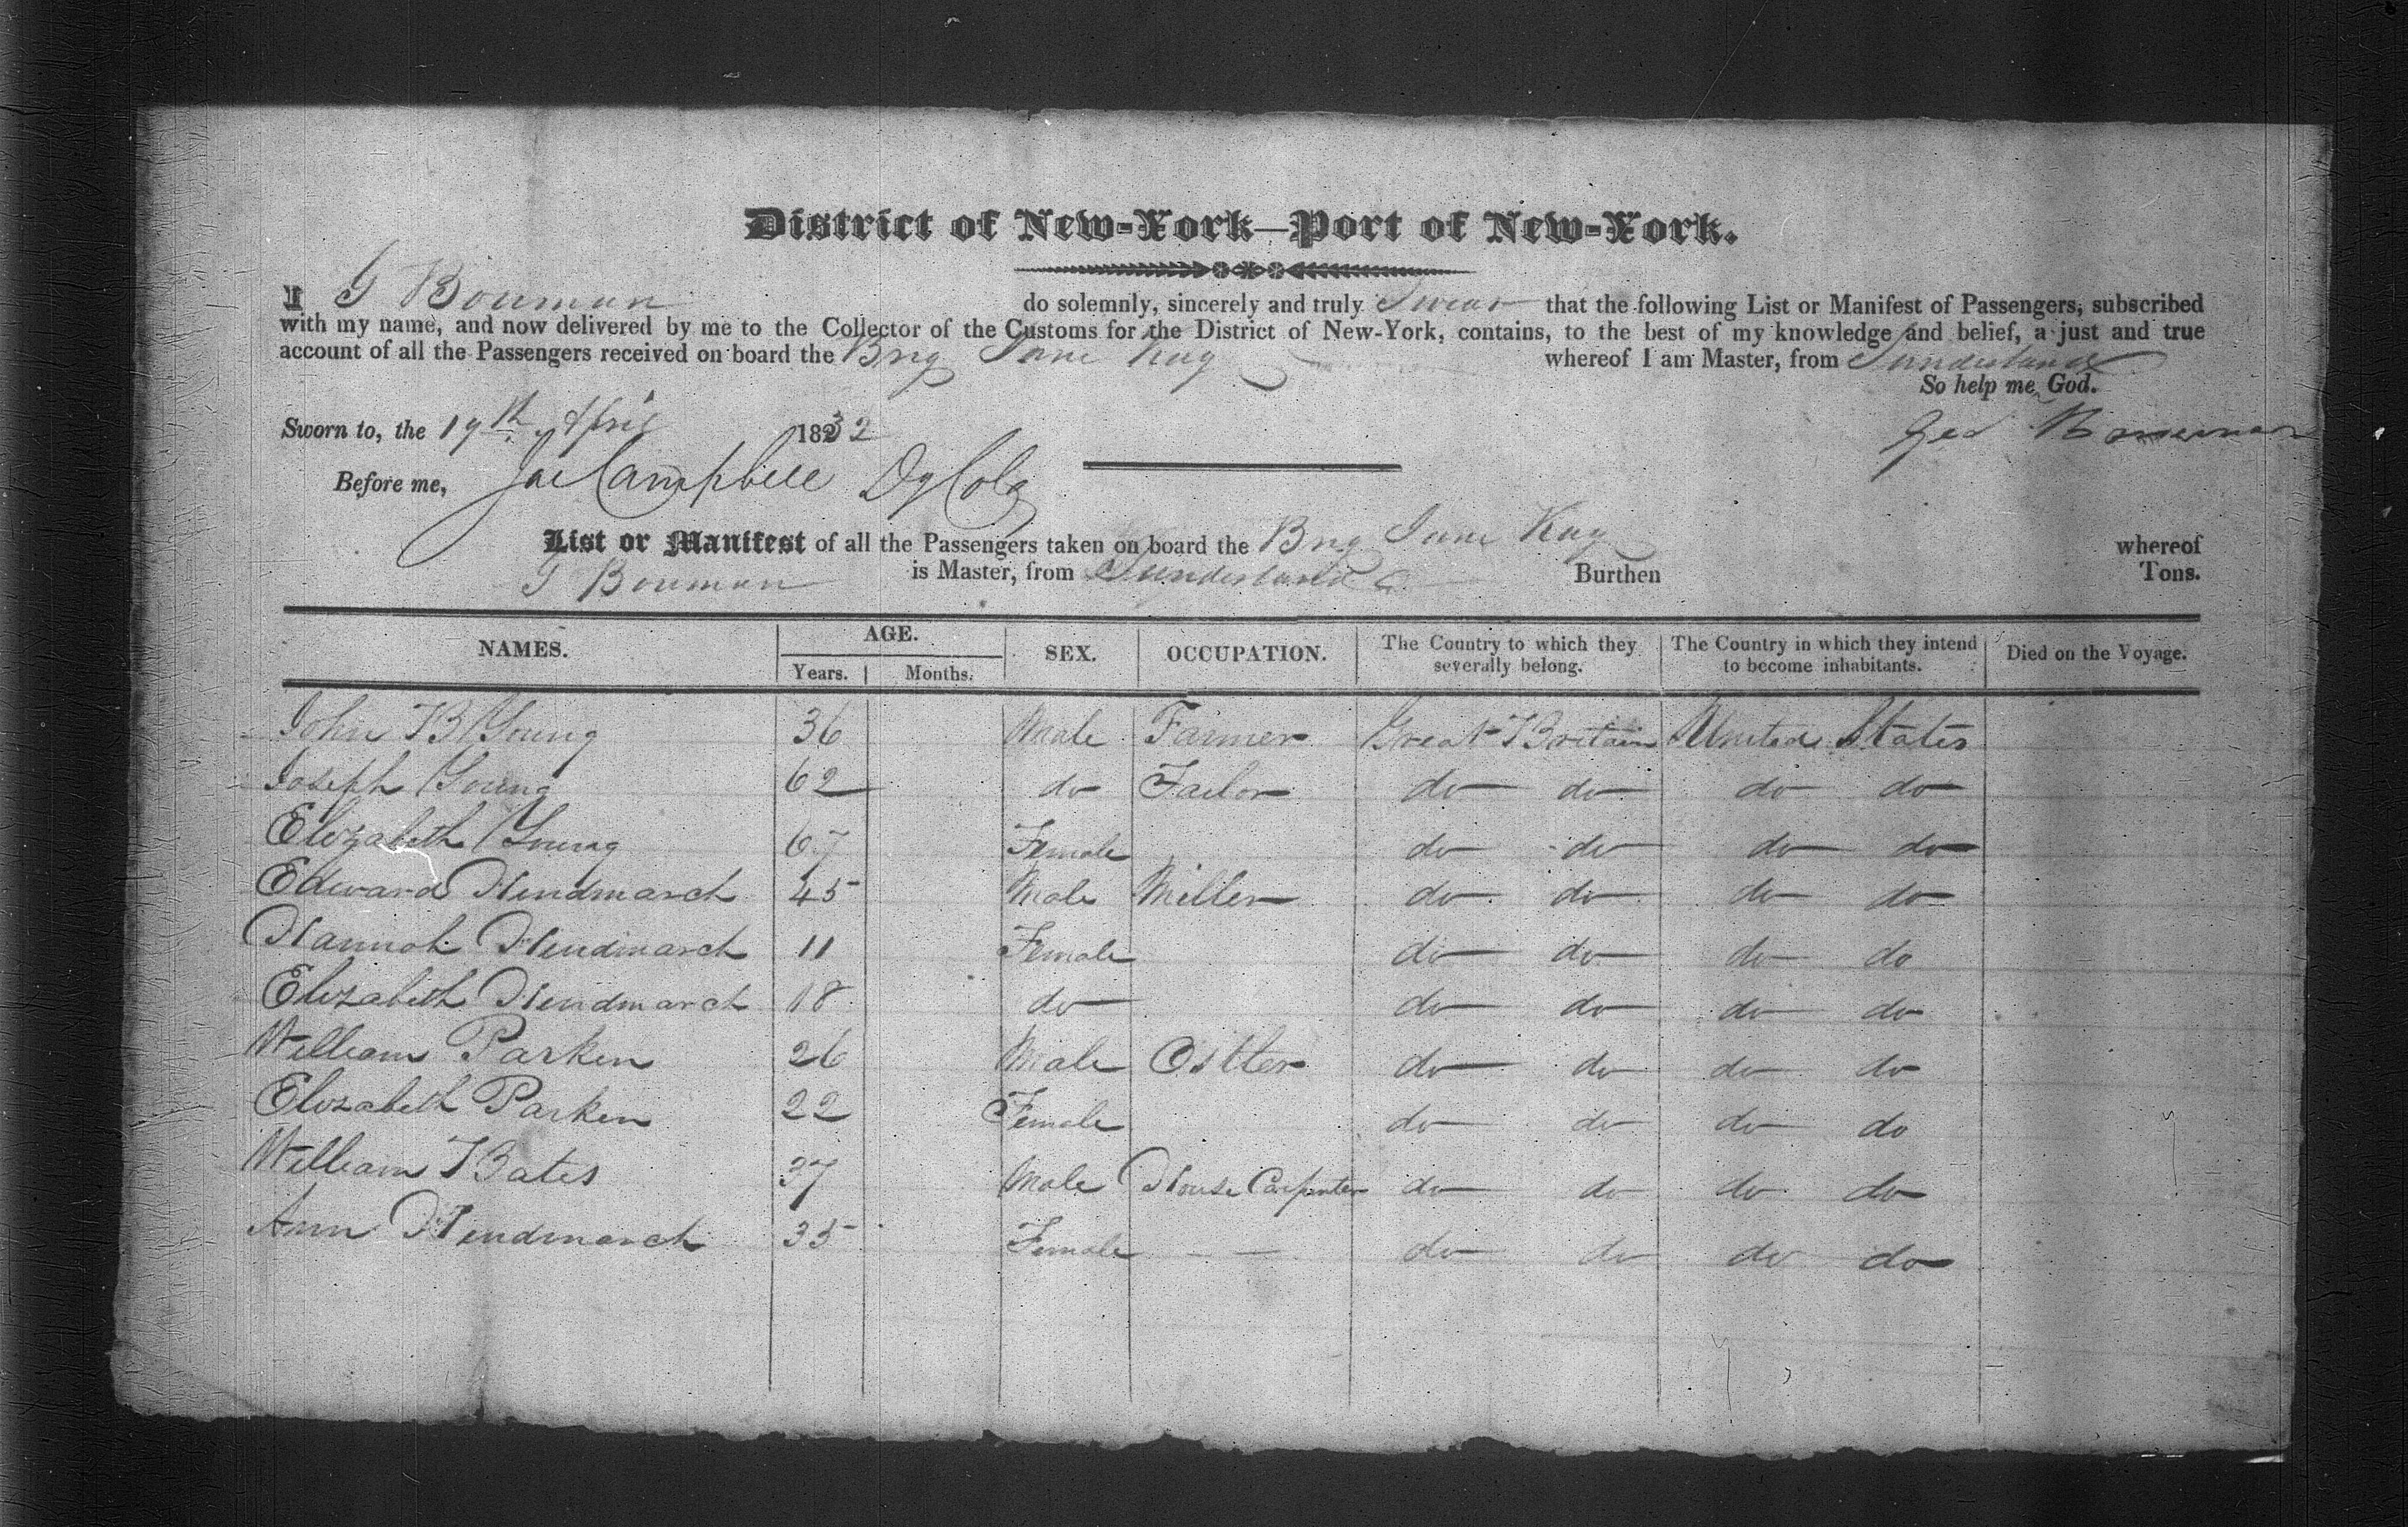 District of New-York—Port of New-York.
I G Bouman do solemnly, sincerely and truly Swear that the following List or Manifest of Passengers, subscribed
with my name, and now delivered by me to the Collector of the Customs for the District of New-York, contains, to the best of my knowledge and belief, a just and true
account of all the Passengers received on board the Brig Jane Kay whereof I am Master, from Sunderland
So help me God.
Sworn to, the 19th April 1832
Geo Bowman
Before me, Jas Campbell Dy Colr
List or Manifest of all the Passengers taken on board the Brig Jane Kay whereof
G Bouman is Master, from Sunderland Burthen Tons.
NAMES. AGE. SEX. OCCUPATION. The Country to which they severally belong. The Country in which they intend to become inhabitants. Died on the Voyage.
Years. Months.
John B Young 36 Male Farmer Great Britain United States
Joseph Young 62 do Tailor do do do do
Elizabeth Young 67 Female do do do do
Edward Hindmarch 45 Male Miller do do do do
Hannah Hindmarch 11 Female do do do do
Elizabeth Hindmarch 18 do do do do do
William Parken 26 Male Ostler do do do do
Elizabeth Parken 22 Female do do do do
William Bates 37 Male House Carpenter do do do do
Ann Hindmarch 35 Female — — do do do do